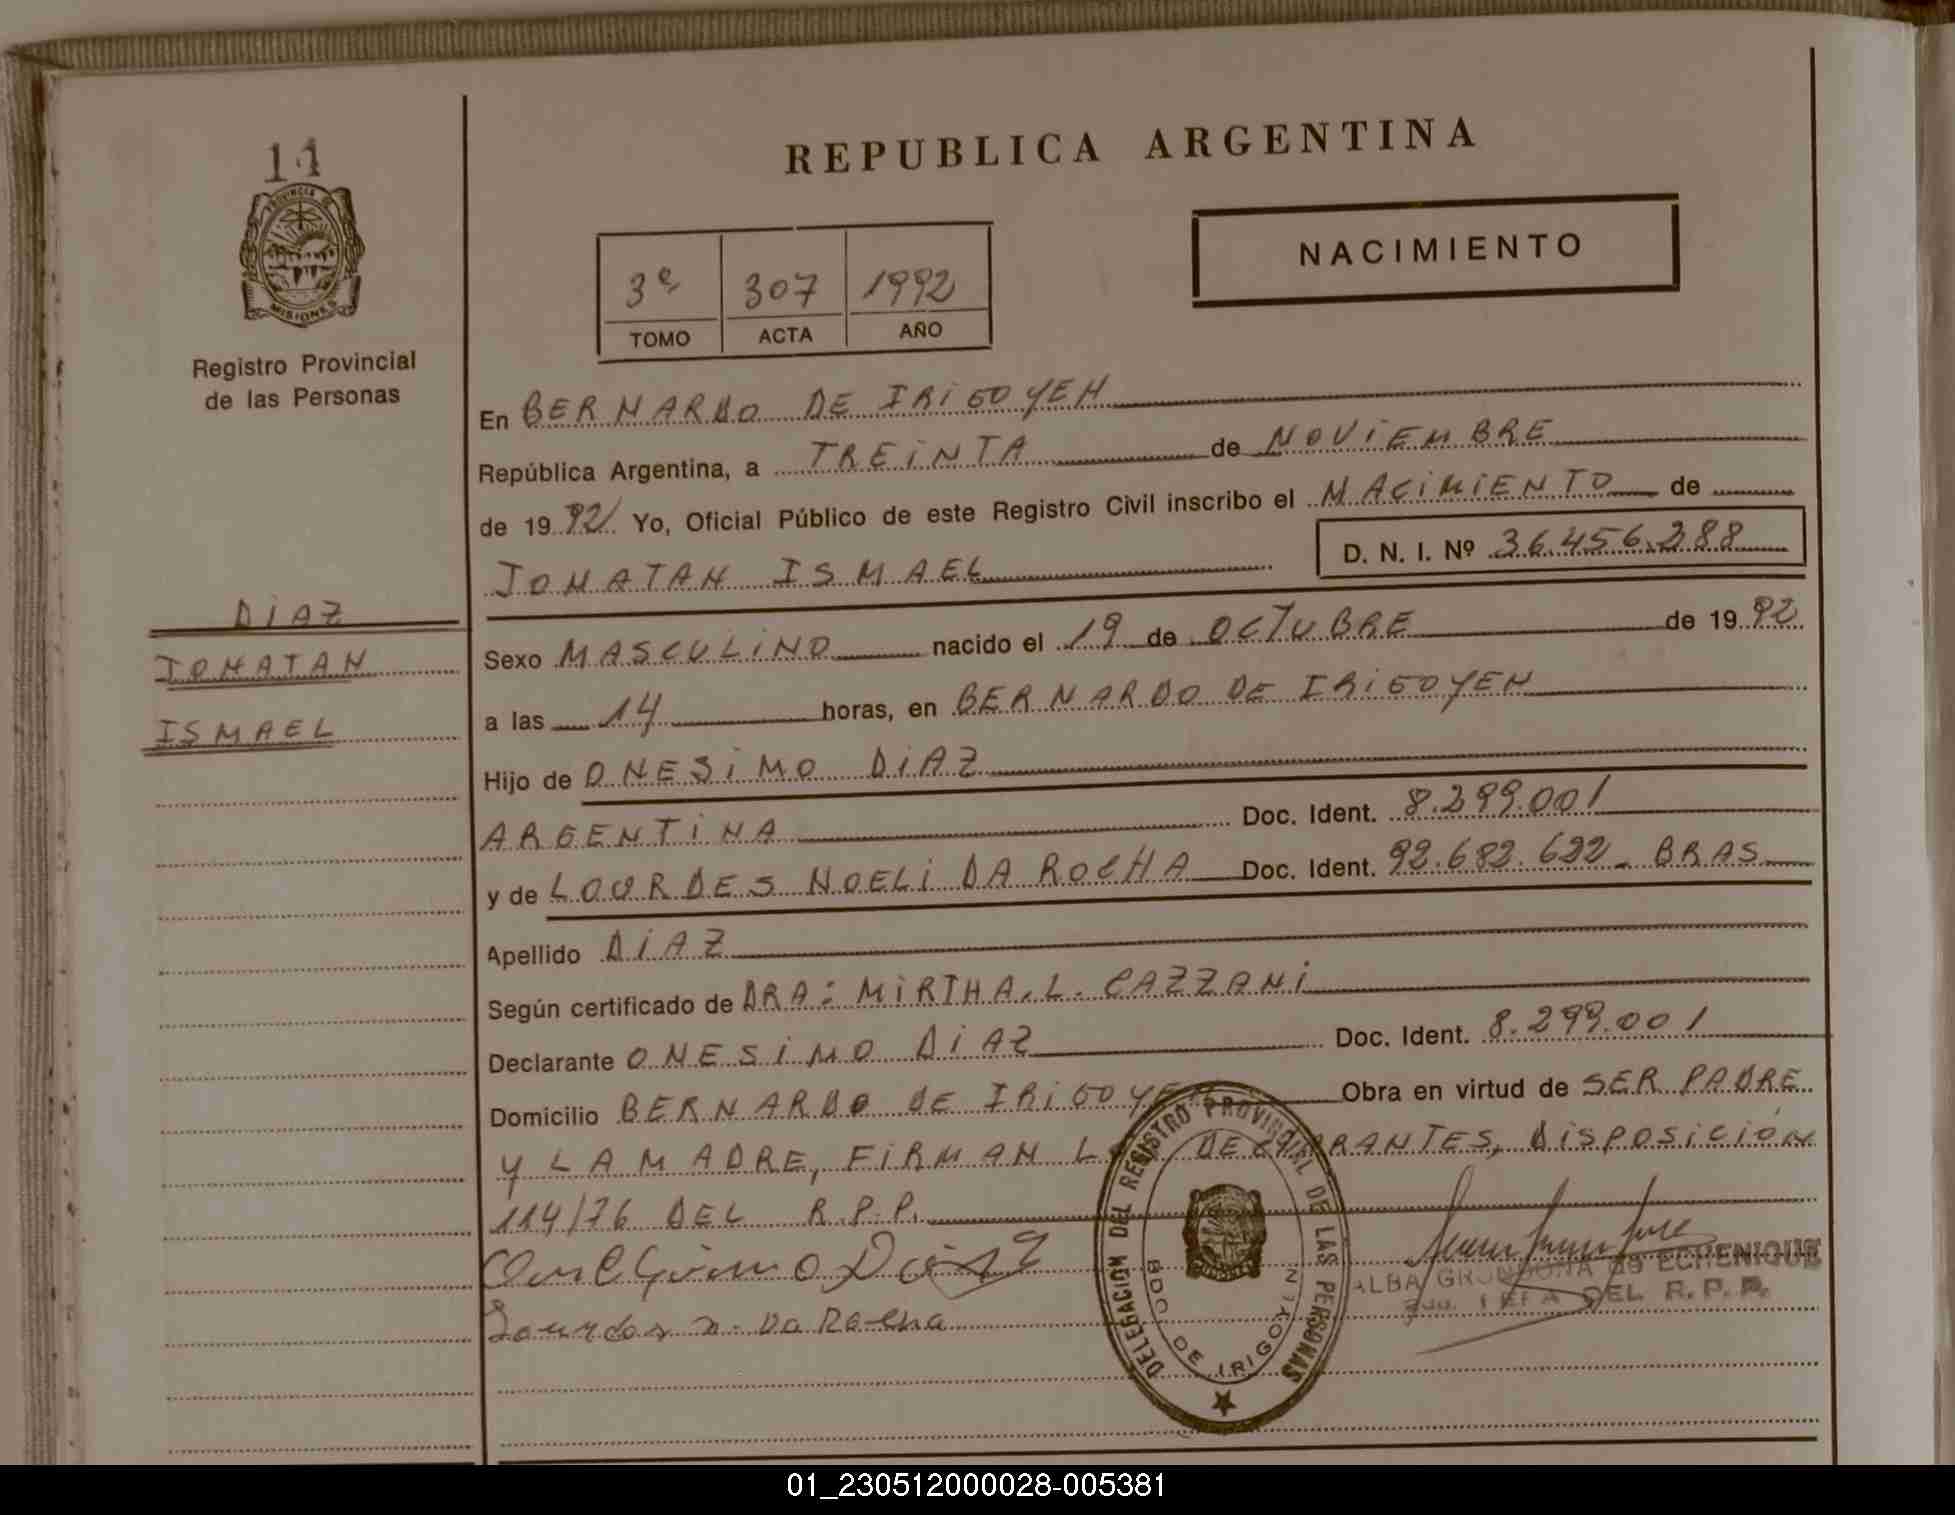 11
PROVINCIA DE
MISIONES
Registro Provincial
de las Personas
DIAZ
JONATAN
ISMAEL
REPUBLICA ARGENTINA
NACIMIENTO
3º 307 1992
TOMO ACTA AÑO
En BERNARDO DE IRIGOYEN
República Argentina, a TREINTA de NOVIEMBRE
de 1992 Yo, Oficial Público de este Registro Civil inscribo el NACIMIENTO de
JONATAN ISMAEL D. N. I. Nº 36.456.288
Sexo MASCULINO nacido el 19 de OCTUBRE de 1992
a las 14 horas, en BERNARDO DE IRIGOYEN
Hijo de ONESIMO DIAZ
ARGENTINA Doc. Ident. 8.299.001
y de LOURDES NOELI DA ROCHA Doc. Ident. 92.682.622 - BRAS
Apellido DIAZ
Según certificado de DRA: MIRTHA. L. CAZZANI
Declarante ONESIMO DIAZ Doc. Ident. 8.299.001
Domicilio BERNARDO DE IRIGOYEN Obra en virtud de SER PADRE
Y LA MADRE, FIRMAN LOS DECLARANTES, DISPOSICIÓN
114/76 DEL R.P.P.
Diaz
Lourdes n. Da Rocha
DELEGACION DEL REGISTRO PROVINCIAL DE LAS PERSONAS
BDO DE IRIGOYEN
ALBA GRONDONA DE ECHENIQUE
JEFA DEL R.P.P.
01_230512000028-005381